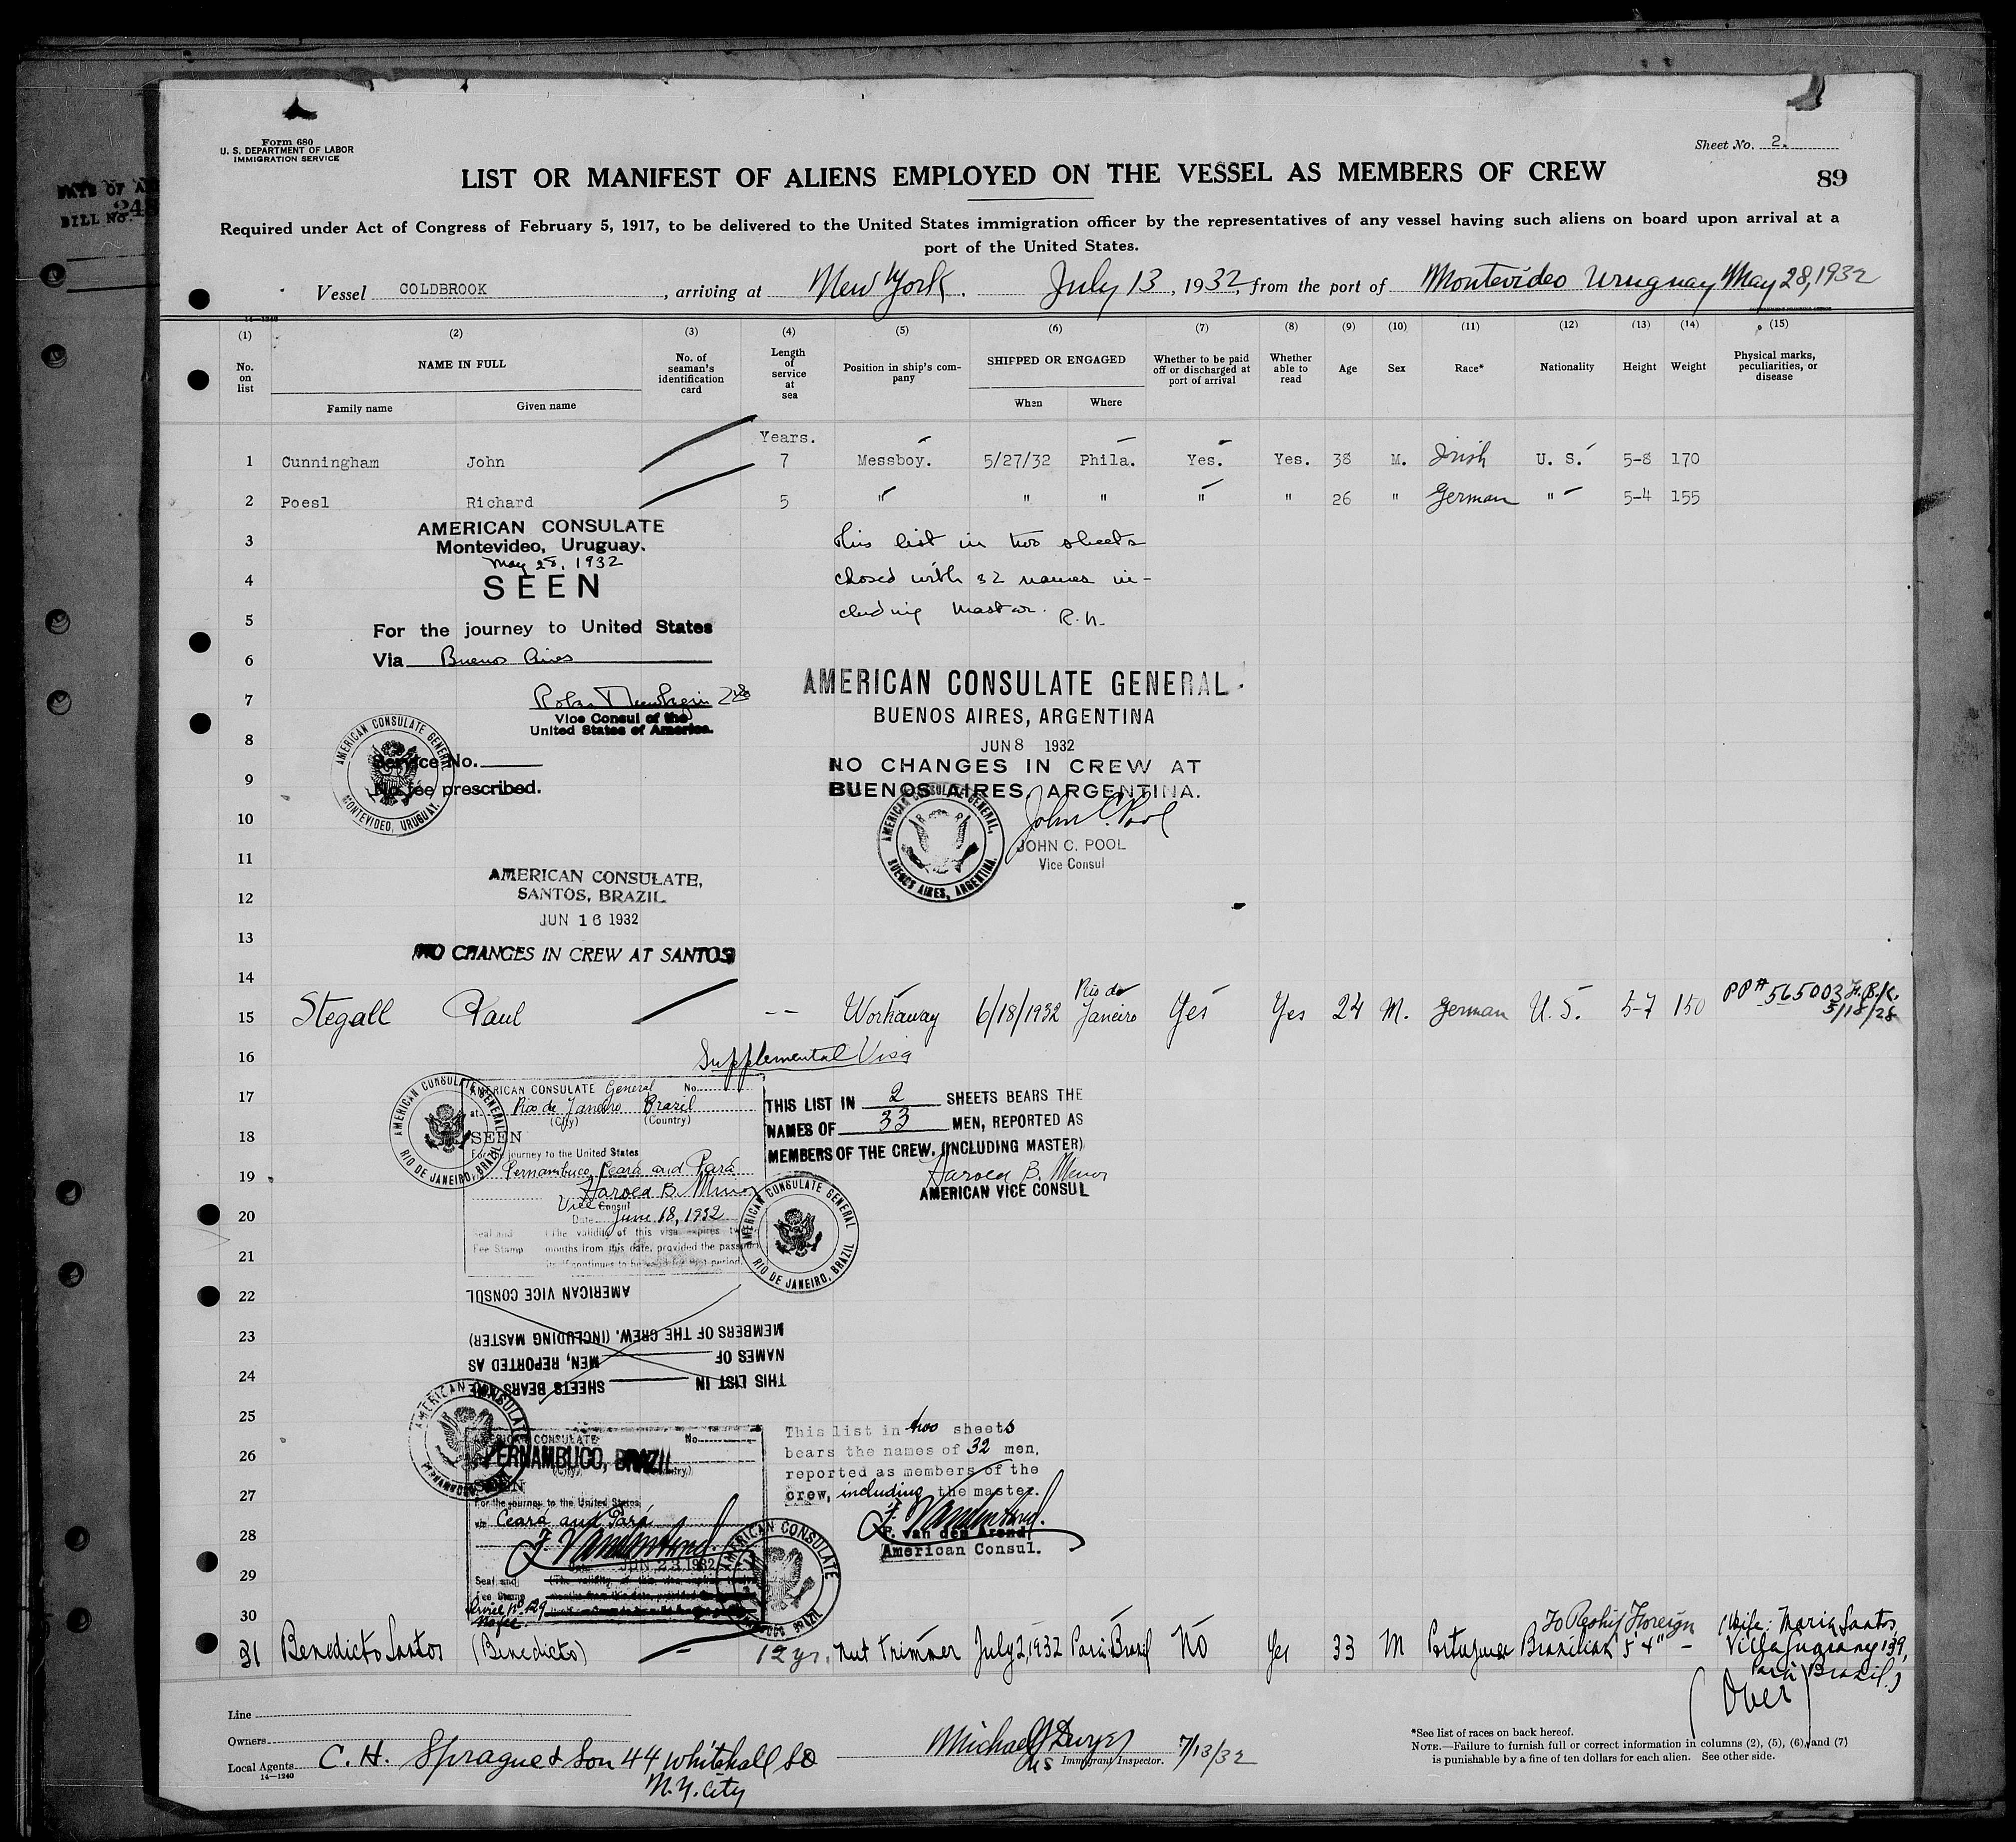 DATE OF
BILL No. 248
Form 680
U. S. DEPARTMENT OF LABOR
IMMIGRATION SERVICE
Sheet No. 2.
LIST OR MANIFEST OF ALIENS EMPLOYED ON THE VESSEL AS MEMBERS OF CREW
89
Required under Act of Congress of February 5, 1917, to be delivered to the United States immigration officer by the representatives of any vessel having such aliens on board upon arrival at a
port of the United States.
Vessel COLDBROOK, arriving at New York. July 13, 1932, from the port of Montevideo Uruguay May 28, 1932
(1) (2) (3) (4) (5) (6) (7) (8) (9) (10) (11) (12) (13) (14) (15)
No. on list NAME IN FULL No. of seaman's identification card Length of service at sea Position in ship's company SHIPPED OR ENGAGED Whether to be paid off or discharged at port of arrival Whether able to read Age Sex Race* Nationality Height Weight Physical marks, peculiarities, or disease
Family name Given name When Where
Years.
1 Cunningham John 7 Messboy. 5/27/32 Phila. Yes. Yes. 38 M. Irish U. S. 5-8 170
2 Poesl Richard 5 " " " " " 26 " German " 5-4 155
AMERICAN CONSULATE
Montevideo, Uruguay.
May 28, 1932
SEEN
For the journey to United States
Via Buenos Aires
Vice Consul of the
United States of America.
Service No.
No fee prescribed.
AMERICAN CONSULATE GENERAL
MONTEVIDEO, URUGUAY.
3 This list in two sheets
4 closed with 32 names in-
5 cluding master. R.N.
6
7
8
9
10
11
12
13
14
AMERICAN CONSULATE GENERAL
BUENOS AIRES, ARGENTINA
JUN 8 1932
NO CHANGES IN CREW AT
BUENOS AIRES, ARGENTINA.
AMERICAN CONSULATE GENERAL,
BUENOS AIRES, ARGENTINA
John C. Pool
JOHN C. POOL
Vice Consul
AMERICAN CONSULATE,
SANTOS, BRAZIL
JUN 16 1932
NO CHANGES IN CREW AT SANTOS
15 Stegall Paul -- Workaway 6/18/1932 Rio de Janeiro Yes Yes 24 M. German U. S. 5-7 150 PP# 565003 5/18/28
16 Supplemental Visa
17
18
19
20
21
22
23
24
AMERICAN CONSULATE General No.
at Rio de Janeiro Brazil
(City) (Country)
SEEN
For the journey to the United States
Pernambuco, Ceará and Pará
Harold B. Minor
Vice Consul
Date June 18, 1932
Seal and (The validity of this visa expires
Fee Stamp months from this date, provided the passport
AMERICAN CONSULATE GENERAL
RIO DE JANEIRO, BRAZIL
THIS LIST IN 2 SHEETS BEARS THE
NAMES OF 33 MEN, REPORTED AS
MEMBERS OF THE CREW. (INCLUDING MASTER)
Harold B. Minor
AMERICAN VICE CONSUL
AMERICAN CONSULATE GENERAL
RIO DE JANEIRO, BRAZIL
AMERICAN VICE CONSUL
MEMBERS OF THE CREW. (INCLUDING MASTER)
NAMES OF MEN, REPORTED AS
THIS LIST IN SHEETS BEARS THE
25
26
27
28
29
30
AMERICAN CONSULATE
AMERICAN CONSULATE No.
PERNAMBUCO, BRAZIL
SEEN
For the journey to the United States
via Ceará and Pará
JUN 23 1932
Seal and
Fee Stamp
Service No. 129
No fee
AMERICAN CONSULATE
This list in two sheets
bears the names of 32 men,
reported as members of the
crew, including the master.
F. van den Arend
American Consul.
To Reship Foreign
31 Benedicto Santos (Benedicto) 12 yr. Nut Trimmer July 2, 1932 Para Brazil No Yes 33 M Portuguese Brazilian 5' 4" - (Wife: Maria Santos,
139,
Para Brazil.)
(Over)
Line
Owners
Local Agents C. H. Sprague & Son 44 Whitehall St
N.Y. City
14—1240
Immigrant Inspector. 7/13/32
*See list of races on back hereof.
NOTE.—Failure to furnish full or correct information in columns (2), (5), (6), and (7)
is punishable by a fine of ten dollars for each alien. See other side.